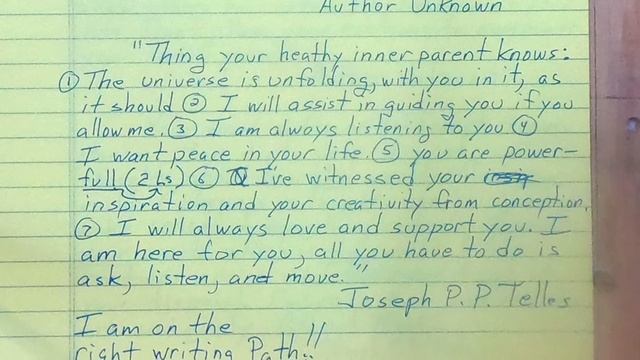 Author Unknown
"Thing your heathy inner parent knows:
① The universe is unfolding, with you in it, as
it should ② I will assist in guiding you if you
allow me. ③ I am always listening to you ④
I want peace in your life. ⑤ you are power-
full (2 Ls) ⑥ I've witnessed your
inspiration and your creativity from conception.
⑦ I will always love and support you. I
am here for you, all you have to do is
ask, listen, and move."
Joseph P. P. Telles
I am on the
right writing Path!!